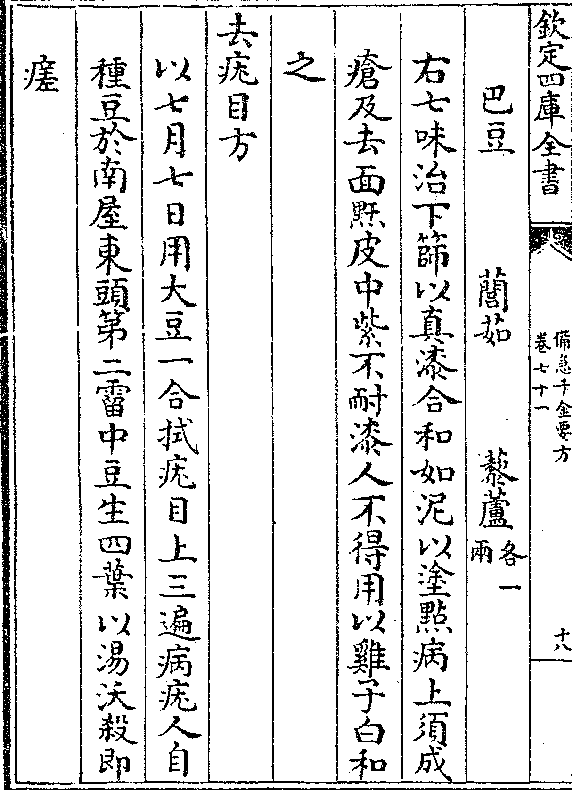 欽定四庫全書
備急千金要方
卷七十一
十八
巴豆　䕡茹　藜蘆各一兩
右七味治下篩以真漆合和如泥以塗㸃病上須成
瘡及去面䵟皮中紫不耐漆人不得用以雞子白和
之
去疣目方
以七月七日用大豆一合拭疣目上三遍病疣人自
種豆於南屋東頭第二霤中豆生四葉以湯沃殺即
瘥